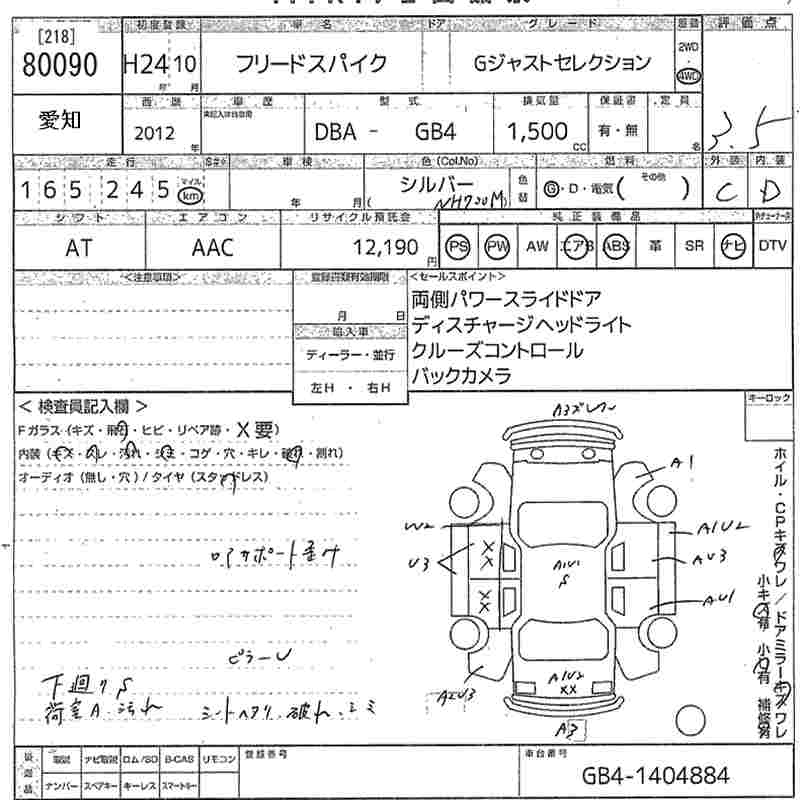 [218]
80090
初度登録
車名
ドア
グレード
駆動
評価点
H24 10
年 月
フリードスパイク
Gジャストセレクション
2WD
4WD
愛知
西暦
車歴
型式
排気量
保証書
定員
2012
年
DBA - GB4
1,500
CC
有・無
名
3.5
走行
車検
色(Col.No)
燃料
外装
内装
165,245
マイル
km
年 月
シルバー
NH700M
色替
G・D・電気( その他 )
C
D
シフト
エアコン
リサイクル預託金
純正装備品
AT
AAC
12,190
円
PS PW AW エアB ABS 革 SR ナビ DTV
<注意事項>
登録書類有効期限
<セールスポイント>
月 日
両側パワースライドドア
ディスチャージヘッドライト
クルーズコントロール
バックカメラ
輸入車
ディーラー・並行
左H ・ 右H
キーロック
< 検査員記入欄 >
Fガラス(キズ・飛石・ヒビ・リペア跡・X要)
内装(キズ・スレ・汚れ・シミ・コゲ・穴・キレ・破れ・割れ)
オーディオ(無し・穴)/タイヤ(スタッドレス)
A1
W2
U3
A1U2
AU3
AU1
A1U1
S
A1U2
XX
A2U3
A3
ロアサポート歪み
ピラーU
下廻りS
荷室A、汚れ
シートヘタリ、破れ、シミ
ホイル・CPキズワレ/ドアミラーキズワレ
小キズ有 小凹有 補修有
取説 ナビ取説 ロム/SD B-CAS リモコン
ナンバー スペアキー キーレス スマートキー
登録番号
車台番号
GB4-1404884